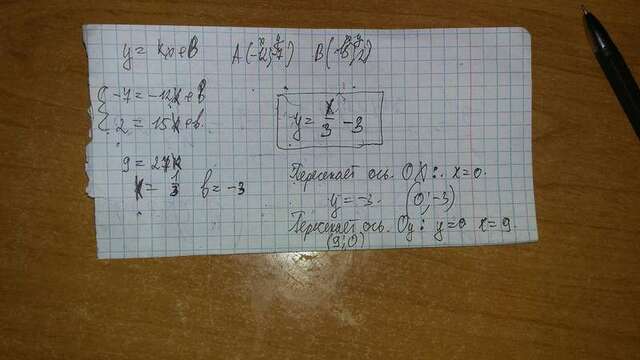 y = kx+в A(-12;-7) B(15;2)
-7 = -12k+в
2 = 15k+в.
9 = 27k
k = 1/3 в = -3
y = x/3 - 3
Пересекает ось. OX: x=0.
y = -3. (0; -3)
Пересекает ось. Oy: y=0 x=9.
(9; 0)